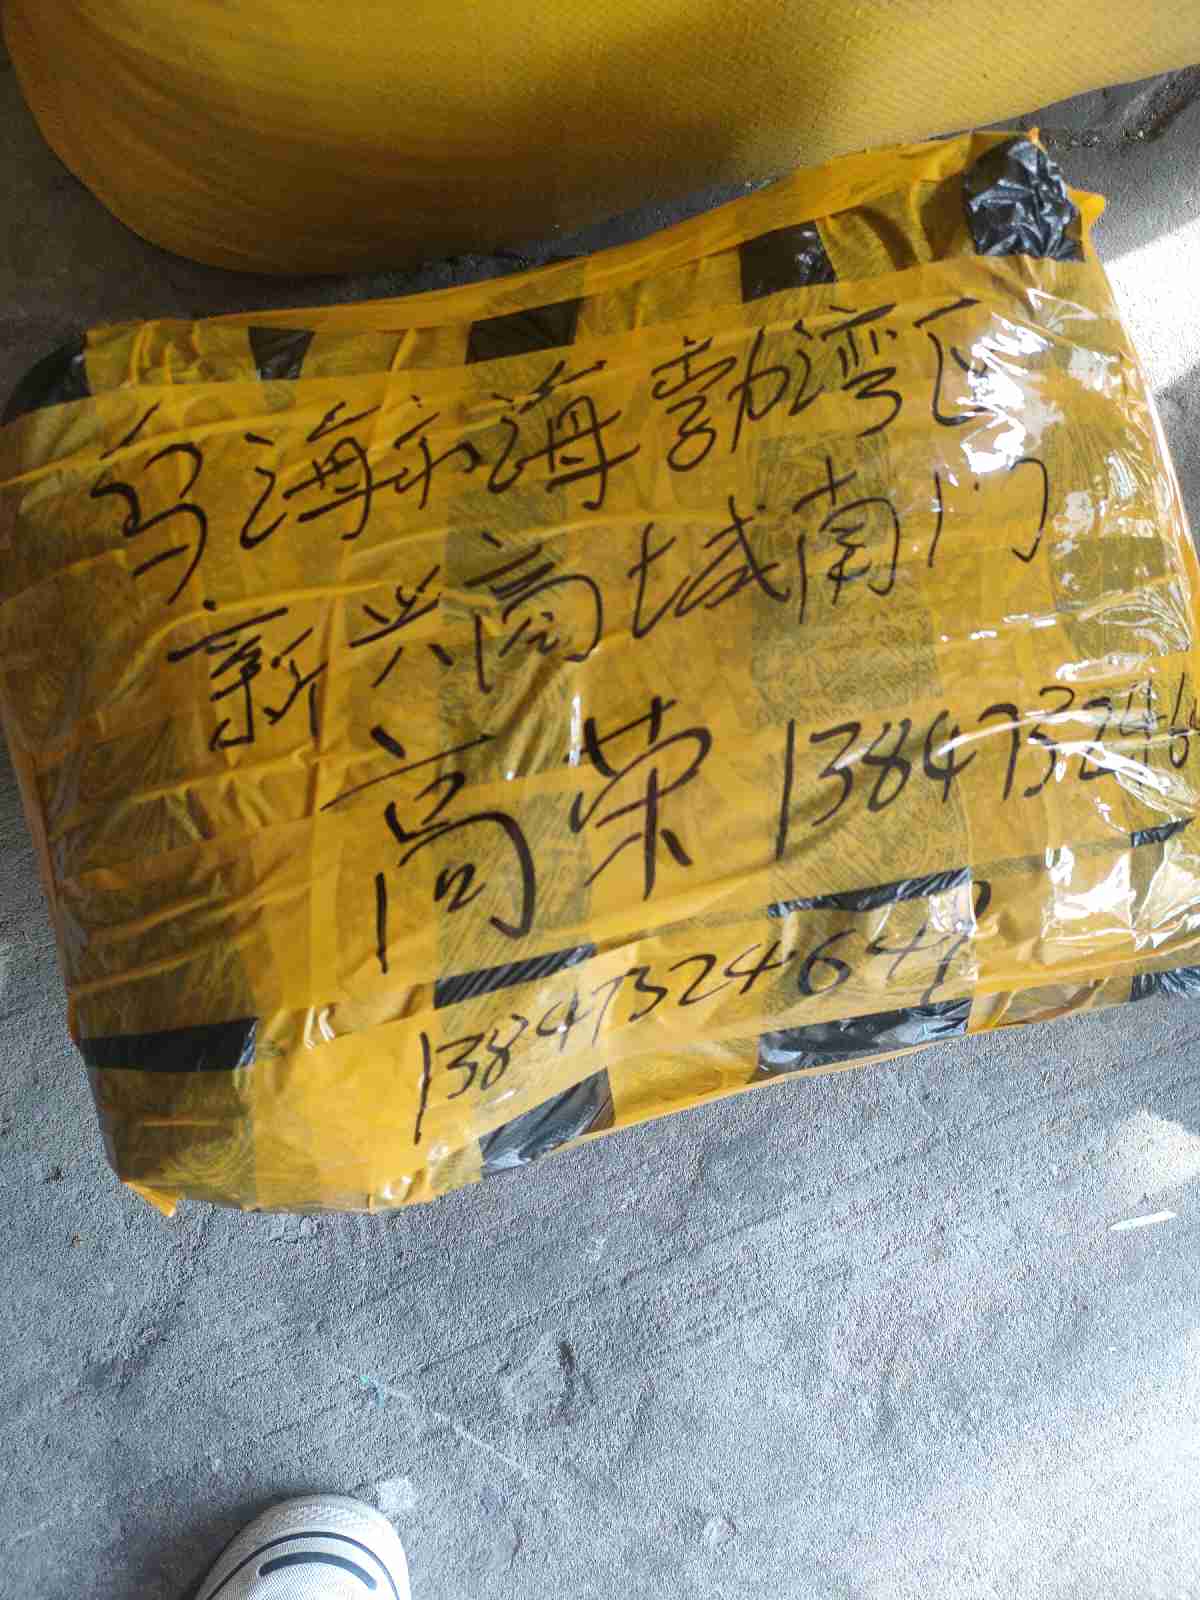 乌海市海勃湾区
新兴商城南门
高荣 138473246
138473246